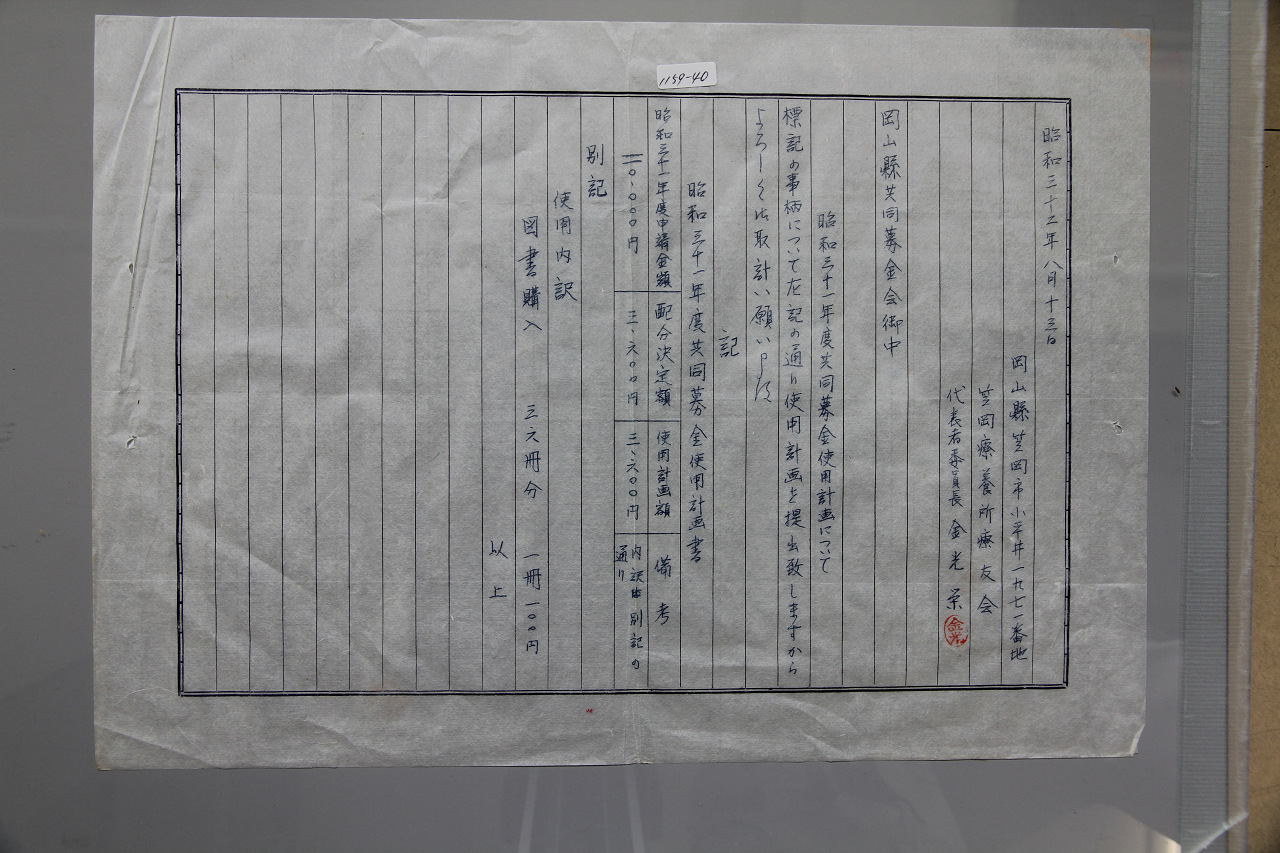 1159-40
昭和三十二年八月十三日
岡山縣笠岡市小平井一九七一番地
笠岡療養所療友会
代表者委員長 金光 栄
金光
岡山縣共同募金会御中
昭和三十一年度共同募金使用計画について
標記の事柄について左記の通り使用計画を提出致しますから
よろしく御取計い願い申します
記
昭和三十一年度共同募金使用計画書
昭和三十一年度申請金額 配分決定額 使用計画額 備考
二〇、〇〇〇円 三、六〇〇円 三、六〇〇円 内訳は別記の
通り
別記
使用内訳
図書購入 三六冊分 一冊一〇〇円
以上